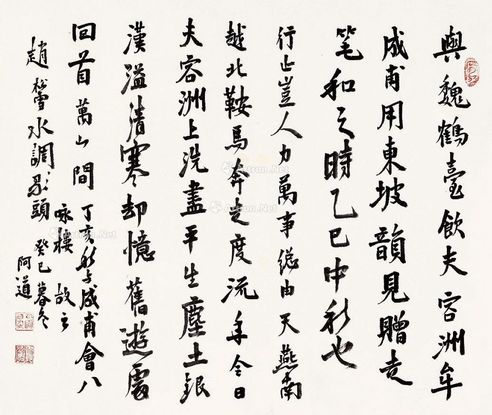 與魏鶴臺飲夫容洲牟
成甫用東坡韻見贈走
笔和之時乙巳中秋也
行止豈人力萬事総由天燕南
越北鞍馬奔走度流年今日
夫容洲上洗盡平生塵土銀
漢溢清寒却憶舊遊處
回首萬山間
丁亥秋与成甫會八
詠樓故云
趙松雪水調歌頭
癸巳暮冬
阿道